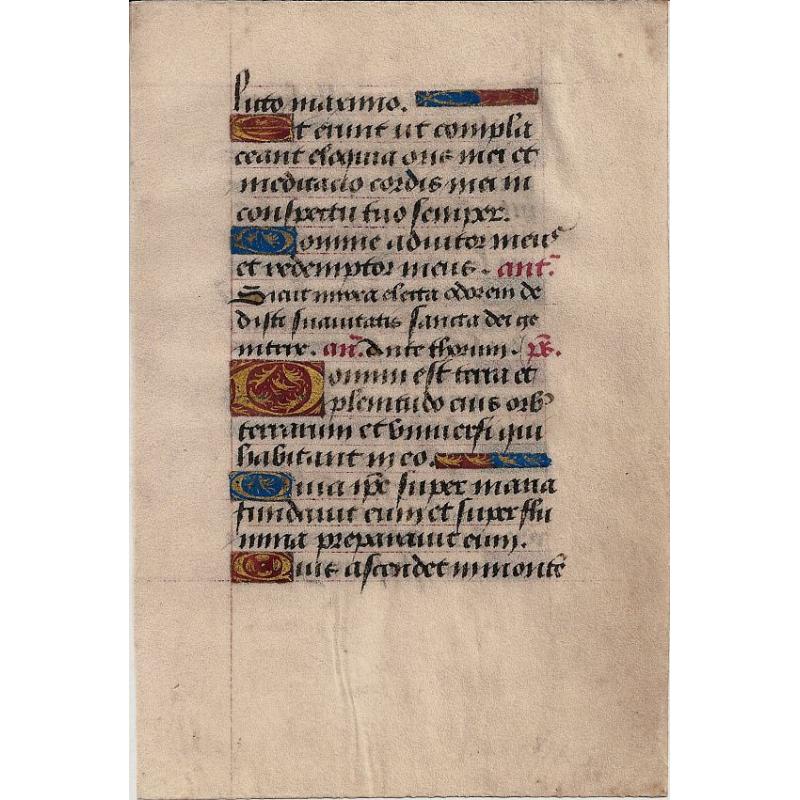 licto maximo.
Et erunt ut compla
ceant eloquia oris mei et
meditacio cordis mei in
conspectu tuo semper.
Domine adiutor meus
et redemptor meus. ant.
Sicut mirra electa odorem de
disti suavitatis sancta dei ge
nitrix. an. Ante thorum. ps.
Domini est terra et
plenitudo eius orb'
terrarum et universi qui
habitant in eo.
Quia ip̄e super maria
fundavit eum et super flu
mina preparavit eum.
Quis ascendet in montē